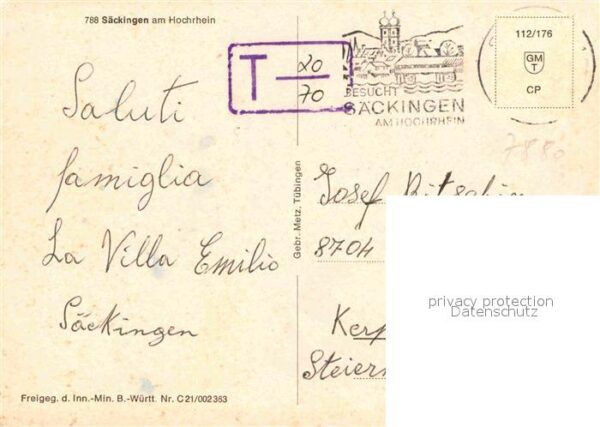 788 Säckingen am Hochrhein
T 20
70
BESUCHT
SÄCKINGEN
AM HOCHRHEIN
112/176
GMT
CP
7880
Saluti
famiglia
La Villa Emilio
Säckingen
Gebr. Metz, Tübingen
Josef
8704
privacy protection
Datenschutz
Freigeg. d. Inn.-Min. B.-Württ. Nr. C 21/002363